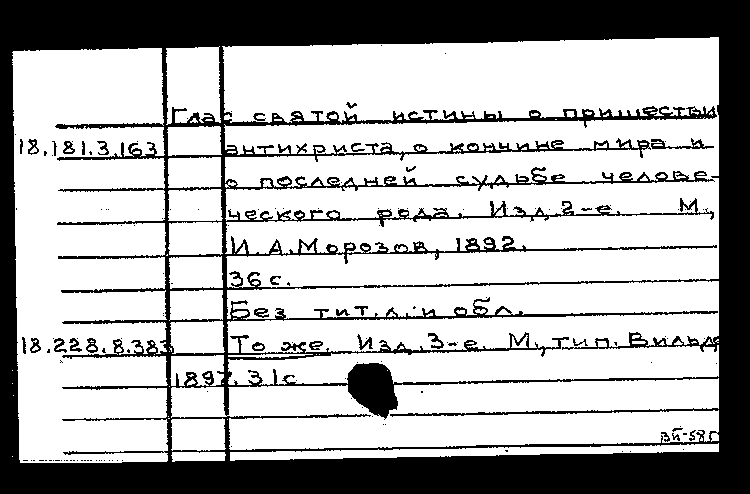 Глас святой истины о пришествии
18.181.3.163 антихриста, о кончине мира и
о последней судьбе челове-
ческого рода. Изд. 2-е. М.,
И.А.Морозов, 1892.
36 с.
Без тит.л. и обл.
18.228.8.383 То же. Изд. 3-е. М., тип. Вильде
1897. 31с
ВП-58г